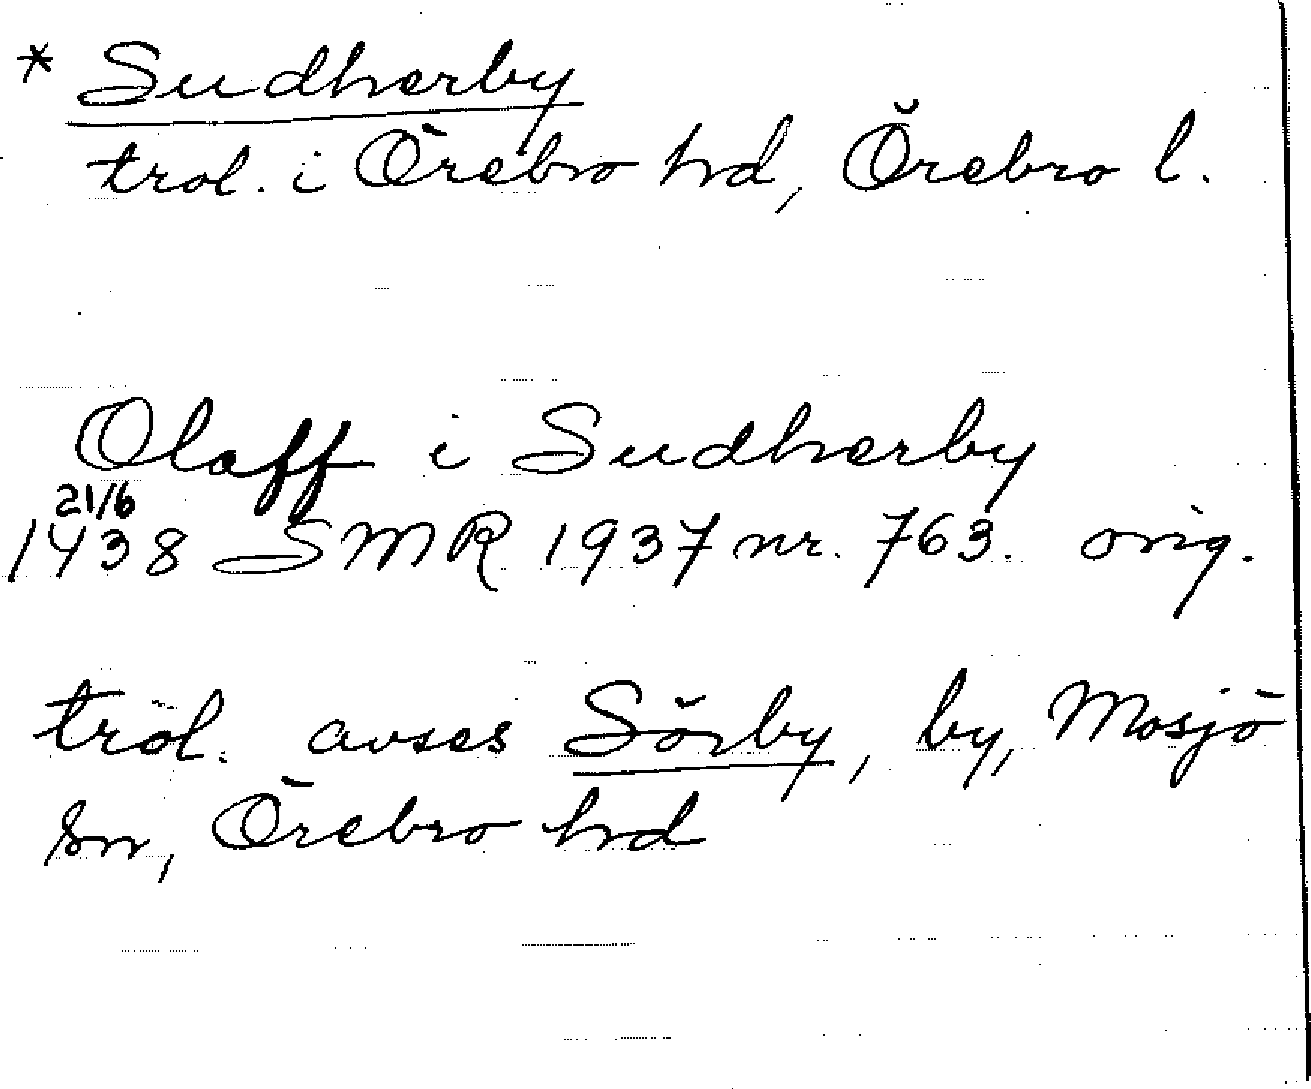 * Sudherby
trol. i Örebro hd, Örebro l.
Olaff i Sudherby
21/6
1438 SMR 1937 nr. 763. orig.
trol. avses Sörby, by, Mosjö
sn, Örebro hd